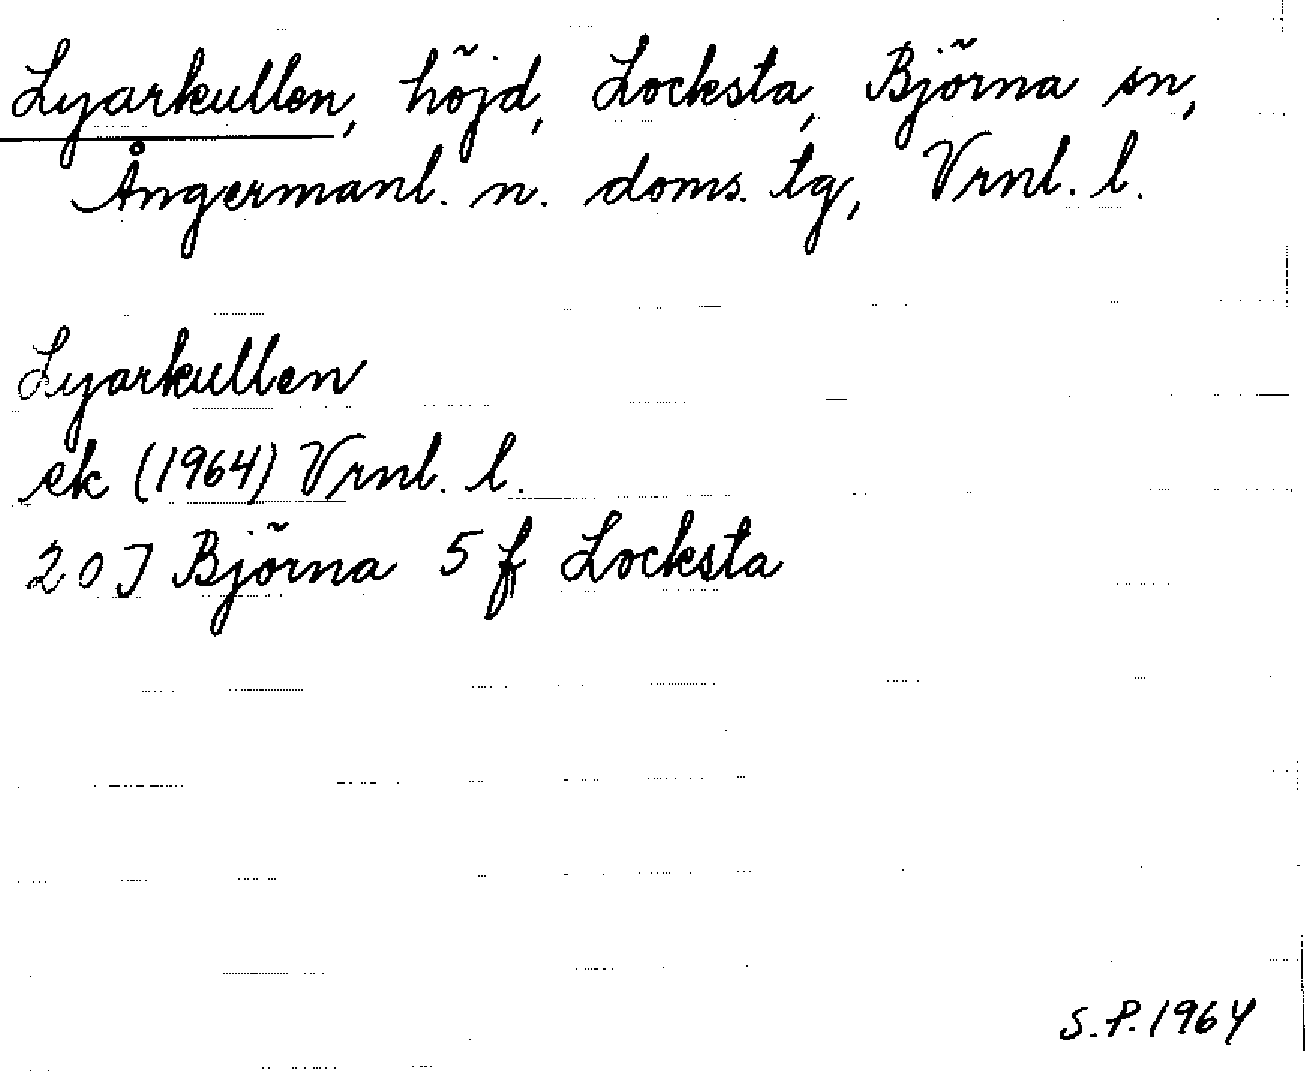 Lyarkullen, höjd, Locksta, Björna sn,
Ångermanl. n. doms. tg, Vrnl. l.
Lyarkullen
ek (1964) Vrnl. l.
20 J Björna 5 f Locksta
S.P. 1964